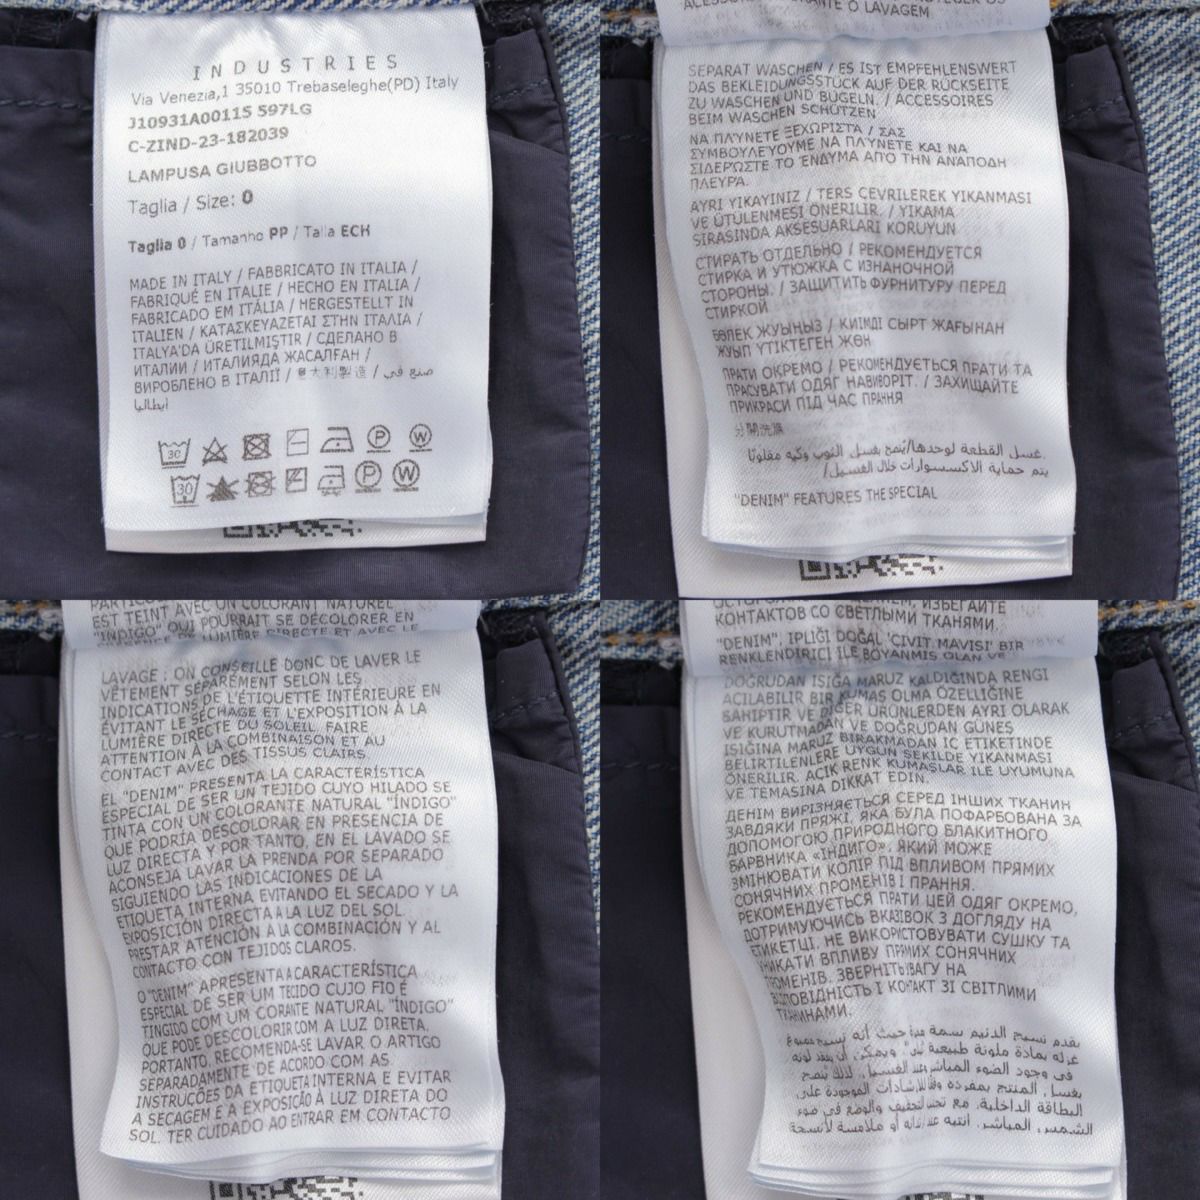 INDUSTRIES
Via Venezia,1 35010 Trebaseleghe(PD) Italy
J10931A00115 597LG
C-ZIND-23-182039
LAMPUSA GIUBBOTTO
Taglia / Size: 0
Taglia 0 / Tamanho PP / Talla ECH
MADE IN ITALY / FABBRICATO IN ITALIA /
FABRIQUÉ EN ITALIE / HECHO EN ITALIA /
FABRICADO EM ITÁLIA / HERGESTELLT IN
ITALIEN / ΚΑΤΑΣΚΕΥΑΖΕΤΑΙ ΣΤΗΝ ΙΤΑΛΙΑ /
ITALYA'DA ÜRETILMIŞTIR / СДЕЛАНО В
ИТАЛИИ / ИТАЛИЯДА ЖАСАЛҒАН /
ВИРОБЛЕНО В ІТАЛІЇ / 意大利製造 / صنع في
إيطاليا
30 P W
30 P W
O LAVAGEM
SEPARAT WASCHEN / ES IST EMPFEHLENSWERT
DAS BEKLEIDUNGSSTÜCK AUF DER RÜCKSEITE
ZU WASCHEN UND BÜGELN. / ACCESSOIRES
BEIM WASCHEN SCHÜTZEN
ΝΑ ΠΛΎΝΕΤΕ ΞΕΧΩΡΙΣΤΆ / ΣΑΣ
ΣΥΜΒΟΥΛΕΎΟΥΜΕ ΝΑ ΠΛΎΝΕΤΕ ΚΑΙ ΝΑ
ΣΙΔΕΡΏΣΤΕ ΤΟ ΈΝΔΥΜΑ ΑΠΌ ΤΗΝ ΑΝΆΠΟΔΗ
ΠΛΕΥΡΆ.
AYRI YIKAYINIZ / TERS CEVRILEREK YIKANMASI
VE ÜTÜLENMESI ÖNERILIR. / YIKAMA
SIRASINDA AKSESUARLARI KORUYUN
СТИРАТЬ ОТДЕЛЬНО / РЕКОМЕНДУЕТСЯ
СТИРКА И УТЮЖКА С ИЗНАНОЧНОЙ
СТОРОНЫ. / ЗАЩИТИТЬ ФУРНИТУРУ ПЕРЕД
СТИРКОЙ
БӨЛЕК ЖУЫҢЫЗ / КИІМДІ СЫРТ ЖАҒЫНАН
ЖУЫП ҮТІКТЕГЕН ЖӨН
ПРАТИ ОКРЕМО / РЕКОМЕНДУЄТЬСЯ ПРАТИ ТА
ПРАСУВАТИ ОДЯГ НАВИВОРІТ. / ЗАХИЩАЙТЕ
ПРИКРАСИ ПІД ЧАС ПРАННЯ
分開洗滌
غسل القطعة لوحدها/يُنصح بغسل الثوب وكيه مقلوبًا.
يتم حماية الاكسسوارات خلال الغسيل/
"DENIM" FEATURES THE SPECIAL
EST TEINT AVEC UN COLORANT NATUREL
"INDIGO", QUI POURRAIT SE DÉCOLORER EN
LUMIÈRE DIRECTE ET AVEC LE
LAVAGE : ON CONSEILLE DONC DE LAVER LE
VÊTEMENT SÉPARÉMENT SELON LES
INDICATIONS DE L'ÉTIQUETTE INTÉRIEURE EN
ÉVITANT LE SÉCHAGE ET L'EXPOSITION À LA
LUMIÈRE DIRECTE DU SOLEIL. FAIRE
ATTENTION À LA COMBINAISON ET AU
CONTACT AVEC DES TISSUS CLAIRS.
EL "DENIM" PRESENTA LA CARACTERÍSTICA
ESPECIAL DE SER UN TEJIDO CUYO HILADO SE
TINTA CON UN COLORANTE NATURAL "ÍNDIGO"
QUE PODRÍA DESCOLORAR EN PRESENCIA DE
LUZ DIRECTA Y POR TANTO, EN EL LAVADO SE
ACONSEJA LAVAR LA PRENDA POR SEPARADO
SIGUIENDO LAS INDICACIONES DE LA
ETIQUETA INTERNA EVITANDO EL SECADO Y LA
EXPOSICIÓN DIRECTA A LA LUZ DEL SOL.
PRESTAR ATENCIÓN A LA COMBINACIÓN Y AL
CONTACTO CON TEJIDOS CLAROS.
O "DENIM" APRESENTA A CARACTERÍSTICA
ESPECIAL DE SER UM TECIDO CUJO FIO É
TINGIDO COM UM CORANTE NATURAL "ÍNDIGO"
QUE PODE DESCOLORIR COM A LUZ DIRETA.
PORTANTO, RECOMENDA-SE LAVAR O ARTIGO
SEPARADAMENTE DE ACORDO COM AS
INSTRUÇÕES DA ETIQUETA INTERNA E EVITAR
A SECAGEM E A EXPOSIÇÃO À LUZ DIRETA DO
SOL. TER CUIDADO AO ENTRAR EM CONTACTO
ИЗБЕГАЙТЕ
КОНТАКТОВ СО СВЕТЛЫМИ ТКАНЯМИ.
"DENIM", IPLIĞI DOĞAL 'ÇIVIT MAVISI' BIR
RENKLENDIRICI ILE BOYANMIS OLAN VE
DOĞRUDAN IŞIĞA MARUZ KALDIĞINDA RENGI
AÇILABILIR BIR KUMAŞ OLMA ÖZELLIĞINE
SAHIPTIR VE DIĞER ÜRÜNLERDEN AYRI OLARAK
VE KURUTMADAN VE DOĞRUDAN GÜNEŞ
IŞIĞINA MARUZ BIRAKMADAN IC ETIKETINDE
BELIRTILENLERE UYGUN SEKILDE YIKANMASI
ÖNERILIR. ACIK RENK KUMASLAR ILE UYUMUNA
VE TEMASINA DIKKAT EDIN.
ДЕНІМ ВИРІЗНЯЄТЬСЯ СЕРЕД ІНШИХ ТКАНИН
ЗАВДЯКИ ПРЯЖІ, ЯКА БУЛА ПОФАРБОВАНА ЗА
ДОПОМОГОЮ ПРИРОДНОГО БЛАКИТНОГО
БАРВНИКА «ІНДИГО», ЯКИЙ МОЖЕ
ЗМІНЮВАТИ КОЛІР ПІД ВПЛИВОМ ПРЯМИХ
СОНЯЧНИХ ПРОМЕНІВ І ПРАННЯ.
РЕКОМЕНДУЄТЬСЯ ПРАТИ ЦЕЙ ОДЯГ ОКРЕМО,
ДОТРИМУЮЧИСЬ ВКАЗІВОК З ДОГЛЯДУ НА
ЕТИКЕТЦІ, НЕ ВИКОРИСТОВУВАТИ СУШКУ ТА
УНИКАТИ ВПЛИВУ ПРЯМИХ СОНЯЧНИХ
ПРОМЕНІВ. ЗВЕРНІТЬ УВАГУ НА
ВІДПОВІДНІСТЬ І КОНТАКТ ЗІ СВІТЛИМИ
ТКАНИНАМИ.
يقدم نسيج الدنيم سمة مميزة حيث أنه نسيج مصبوغ
غزله بمادة ملونة طبيعية ويمكن أن يفقد لونه
في وجود الضوء المباشر وعند الغسيل. لذلك ينصح
بغسل المنتج بمفرده وفقًا للإرشادات الموجودة على
البطاقة الداخلية. مع تجنب التجفيف والوضع في ضوء
الشمس المباشر. انتبه عند أو ملامسة لأنسجة